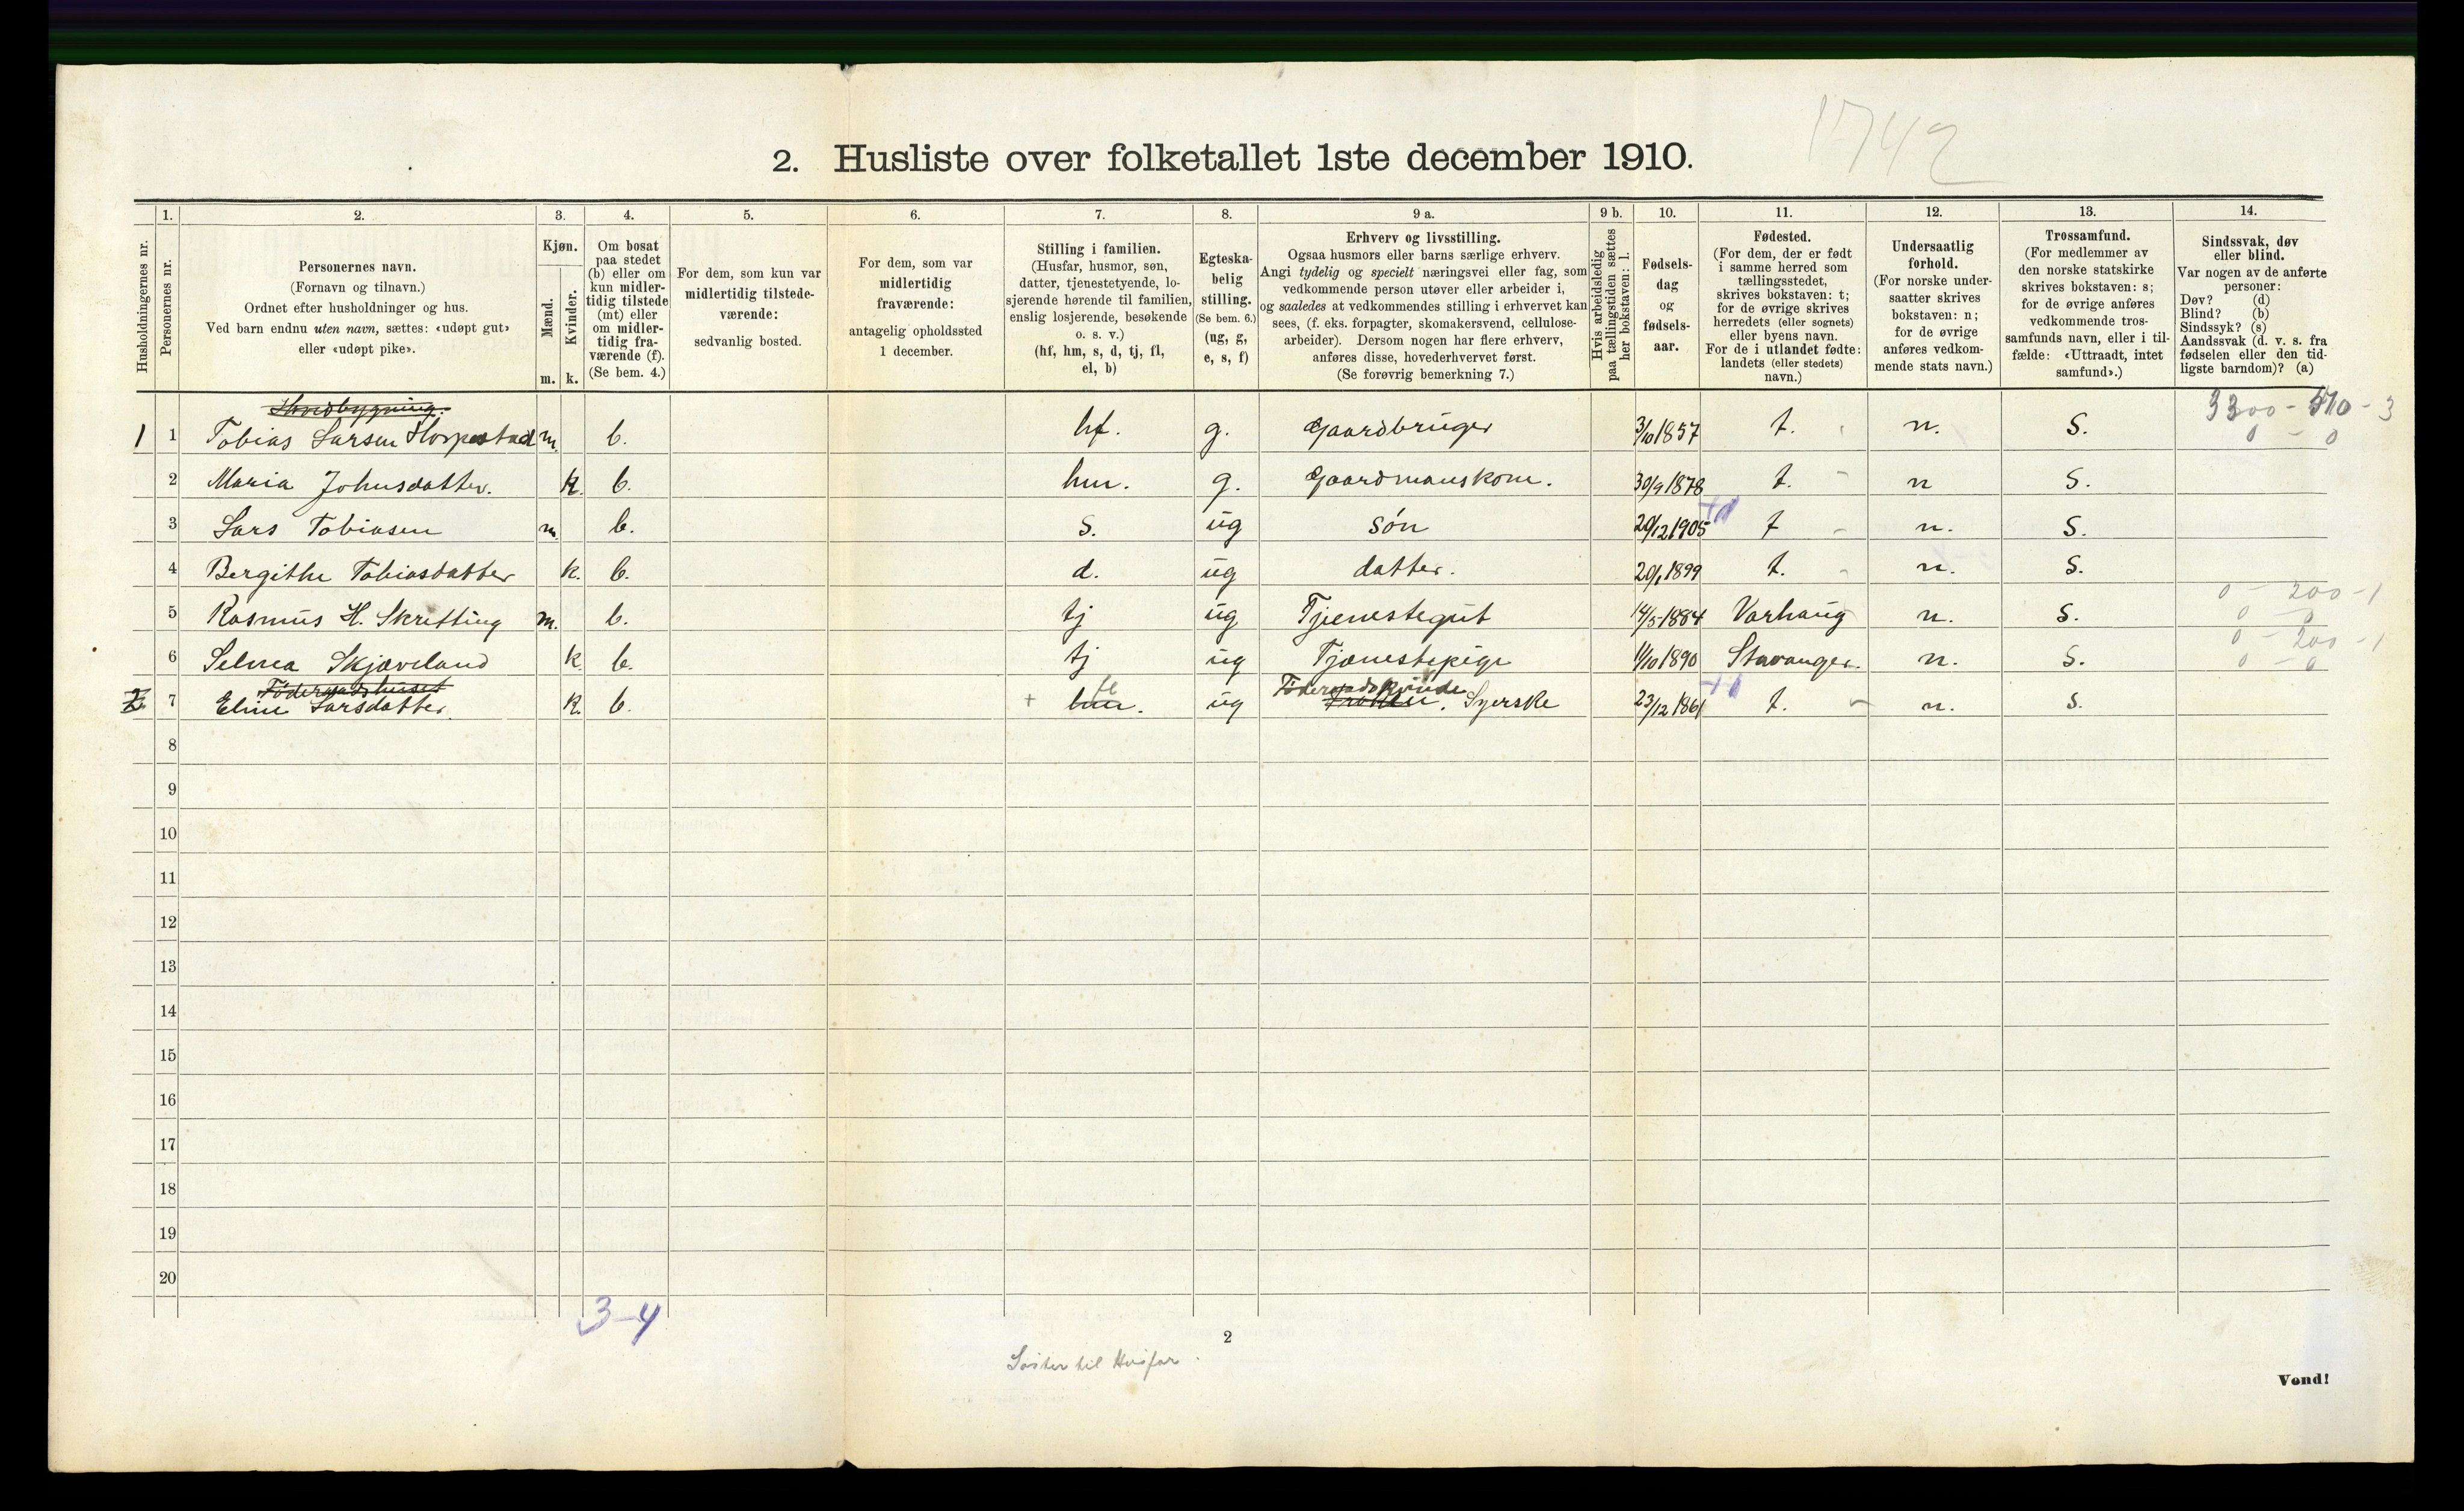 1742
2. Husliste over folketallet 1ste december 1910.
Husholdningernes nr.
1.
Personernes nr.
2.
Personernes navn.
(Fornavn og tilnavn.)
Ordnet efter husholdninger og hus.
Ved barn endnu uten navn, sættes: «udøpt gut»
eller «udøpt pike».
3.
Kjøn.
Mænd.
m.
Kvinder.
k.
4.
Om bosat
paa stedet
(b) eller om
kun midler-
tidig tilstede
(mt) eller
om midler-
tidig fra-
værende (f).
(Se bem. 4.)
5.
For dem, som kun var
midlertidig tilstede-
værende:
sedvanlig bosted.
6.
For dem, som var
midlertidig
fraværende:
antagelig opholdssted
1 december.
7.
Stilling i familien.
(Husfar, husmor, søn,
datter, tjenestetyende, lo-
sjerende hørende til familien,
enslig losjerende, besøkende
o. s. v.)
(hf, hm, s, d, tj, fl,
el, b)
8.
Egteska-
belig
stilling.
(Se bem. 6.)
(ug, g,
e, s, f)
9 a.
Erhverv og livsstilling.
Ogsaa husmors eller barns særlige erhverv.
Angi tydelig og specielt næringsvei eller fag, som
vedkommende person utøver eller arbeider i,
og saaledes at vedkommendes stilling i erhvervet kan
sees, (f. eks. forpagter, skomakersvend, cellulose-
arbeider). Dersom nogen har flere erhverv,
anføres disse, hovederhvervet først.
(Se forøvrig bemerkning 7.)
9 b.
Hvis arbeidsledig
paa tællingstiden sættes
her bokstaven: l.
10.
Fødsels-
dag
og
fødsels-
aar.
11.
Fødested.
(For dem, der er født
i samme herred som
tællingsstedet,
skrives bokstaven: t;
for de øvrige skrives
herredets (eller sognets)
eller byens navn.
For de i utlandet fødte:
landets (eller stedets)
navn.)
12.
Undersaatlig
forhold.
(For norske under-
saatter skrives
bokstaven: n;
for de øvrige
anføres vedkom-
mende stats navn.)
13.
Trossamfund.
(For medlemmer av
den norske statskirke
skrives bokstaven: s;
for de øvrige anføres
vedkommende tros-
samfunds navn, eller i til-
fælde: «Uttraadt, intet
samfund».)
14.
Sindssvak, døv
eller blind.
Var nogen av de anførte
personer:
Døv? (d)
Blind? (b)
Sindssyk? (s)
Aandssvak (d. v. s. fra
fødselen eller den tid-
ligste barndom)? (a)
Hovedbygning.
1 1 Tobias Larsen Horpestad m. b. hf. g. Gaardbruger 3/10 1857 t. n. S. 3300 - 510 - 3
0 - 0
2 Maria Johnsdatter. k. b. hm. g. Gaardmanskone. 30/9 1878 t. n S.
3 Lars Tobiasen m. b. s. ug søn 20/12 1905 t n. S.
4 Bergithe Tobiasdatter k. b. d. ug datter. 20/1 1899 t. n. S.
5 Rasmus H. Skretting m. b. tj ug Tjenestegut 14/5 1884 Varhaug n. S. 0 - 200 - 1
0 - 0
6 Selma Skjæveland k. b. tj ug Tjenestepige 11/10 1890 Stavanger. n. S. 0 - 200 - 1
0 - 0
Föderaadshuset
2 7 Eline Larsdatter. k. b. + hm. fl ug Föderaadskvinde Frøken, Syerske 23/12 1861 t. n. S.
8
9
10
11
12
13
14
15
16
17
18
19
20
3-4
2
Søster til Husfar.
Vend!